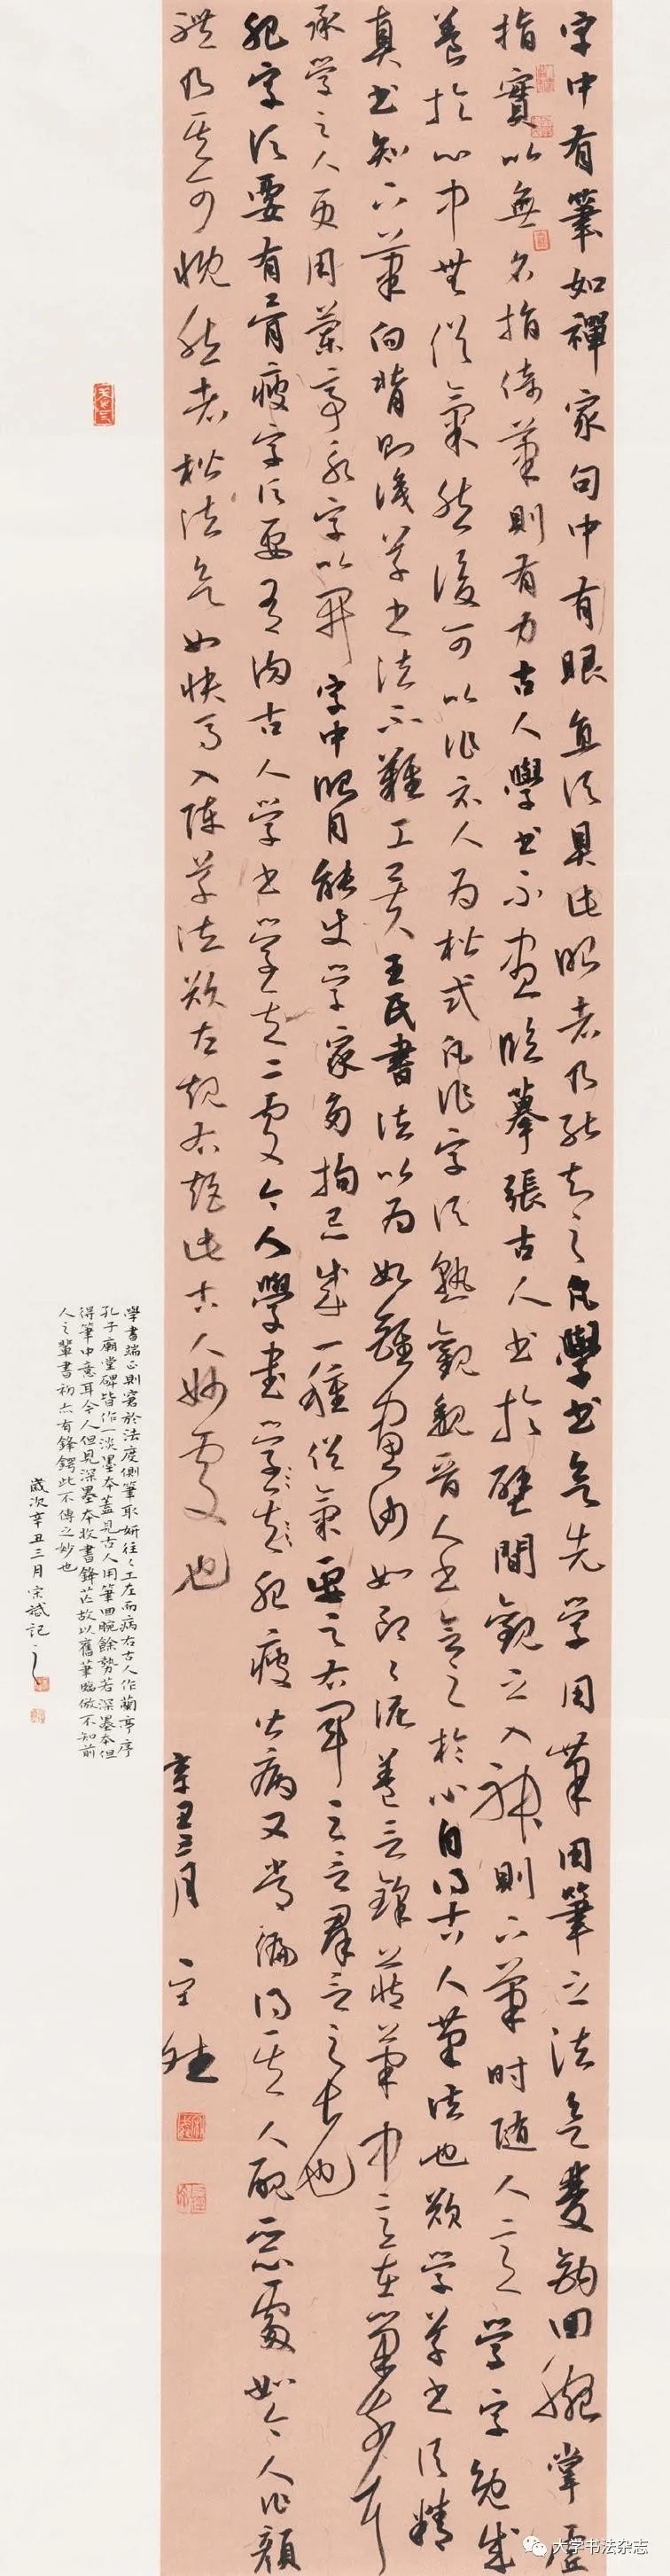 字中有筆如禪家句中有眼直須具此眼者乃能知之凡學書欲先學用筆用筆之法欲雙鉤回腕掌虛
指實以無名指倚筆則有力古人學書不盡臨摹張古人書於壁間觀之入神則下筆時隨人意學字既成
養於心中無俗氣然後可以作示人為楷式凡作字須熟觀魏晉人書會之於心自得古人筆法也欲學草書須精
真書知下筆向背則識草書法不難工矣王氏書法以為如錐畫沙如印印泥蓋言鋒藏筆中意在筆前耳
承學之人更用蘭亭永字以開字中眼目能使學家多拘忌成一種俗氣要之右軍二言群言之長也
肥字須要有骨瘦字須要有肉古人學書學其二處今人學書學其肥瘦皆病又常偏得其人醜惡處如今人作顏
體乃其可慨然者楷法欲如快馬入陣草法欲左規右矩此古人妙處也
辛丑三月 宗斌
學書端正則窘於法度側筆取妍往往工左而病右古人作蘭亭序
孔子廟堂碑皆作一淡墨本蓋見古人用筆回腕餘勢若深墨本但
得筆中意耳今人但見深墨本收書鋒芒故以舊筆臨倣不知前
人之輩書初亦有鋒鍔此不傳之妙也
歲次辛丑三月宗斌記之
大学书法杂志